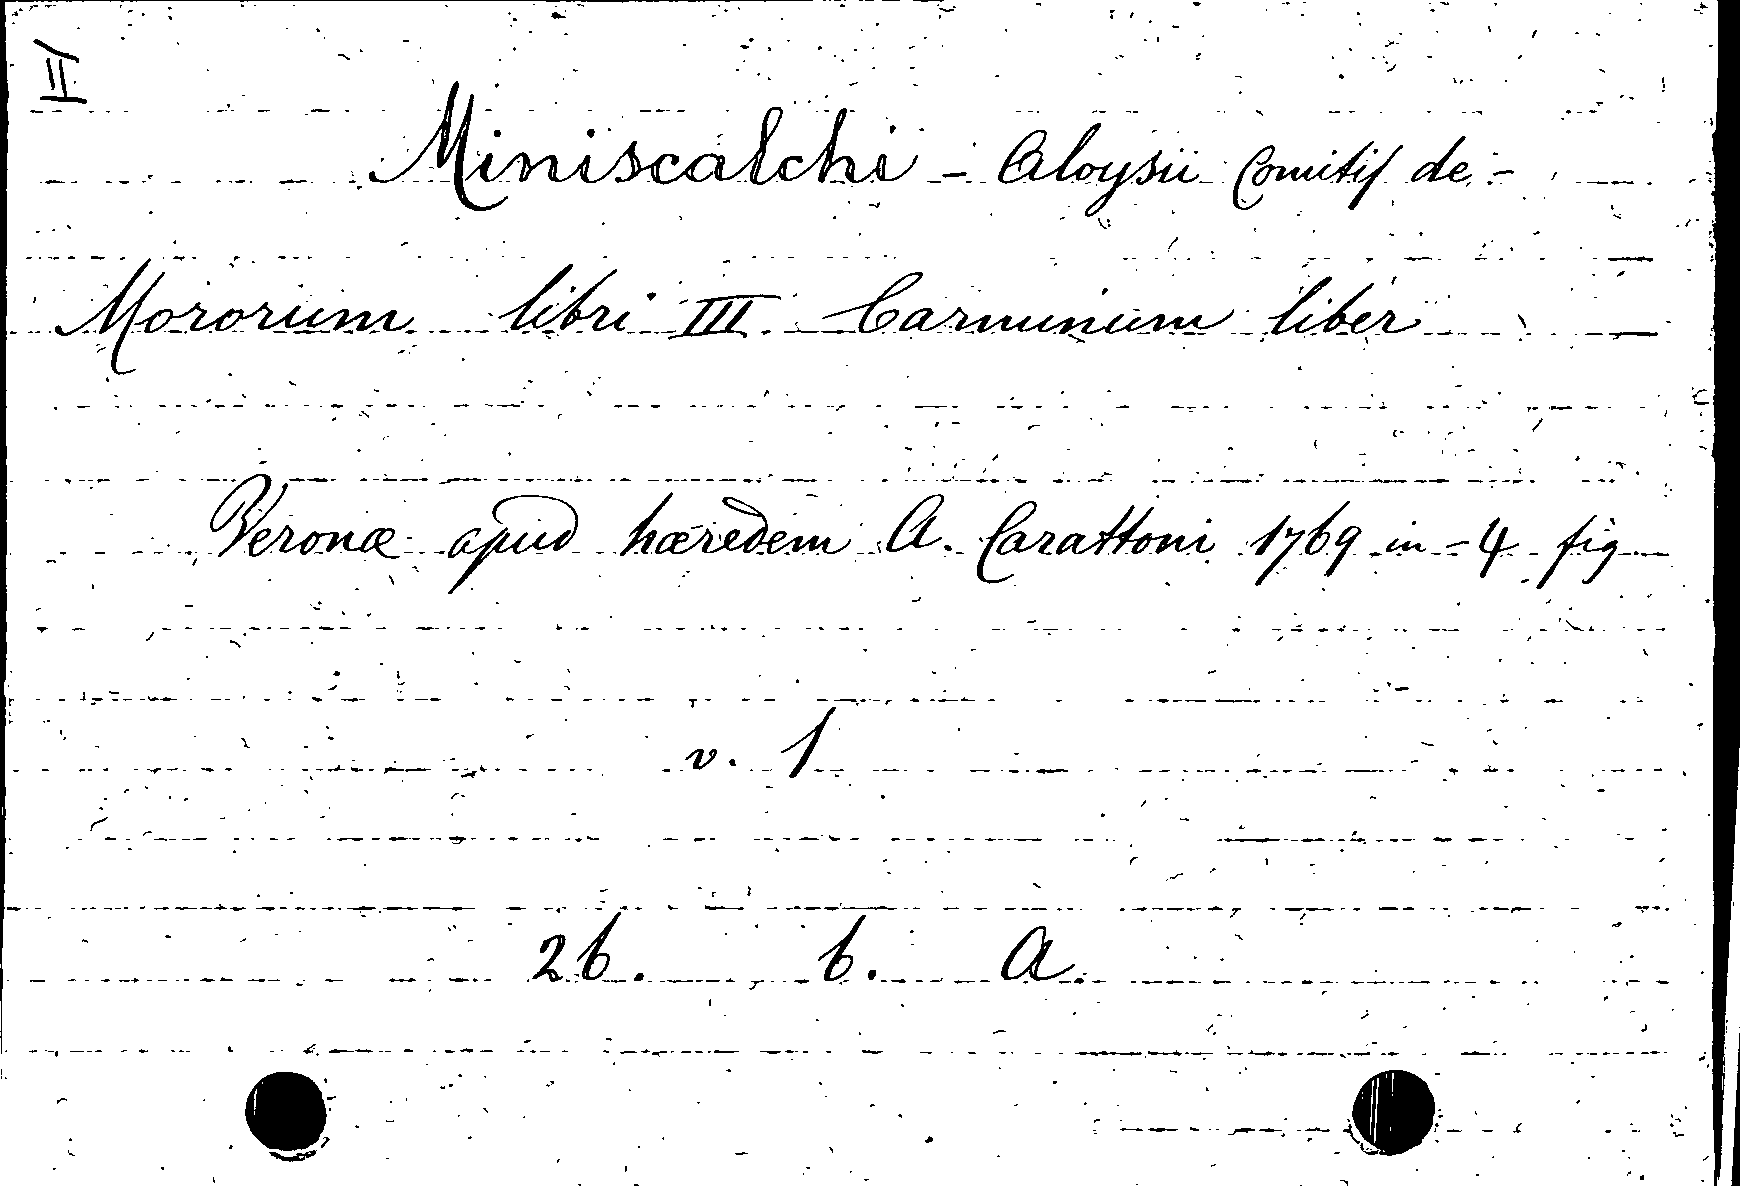 II
Miniscalchi - Aloysii Comitis de -
Mororum libri III Carminum liber
Veronæ apud hæredem A. Carattoni 1769 in-4 fig
v. 1
26. 6. A.